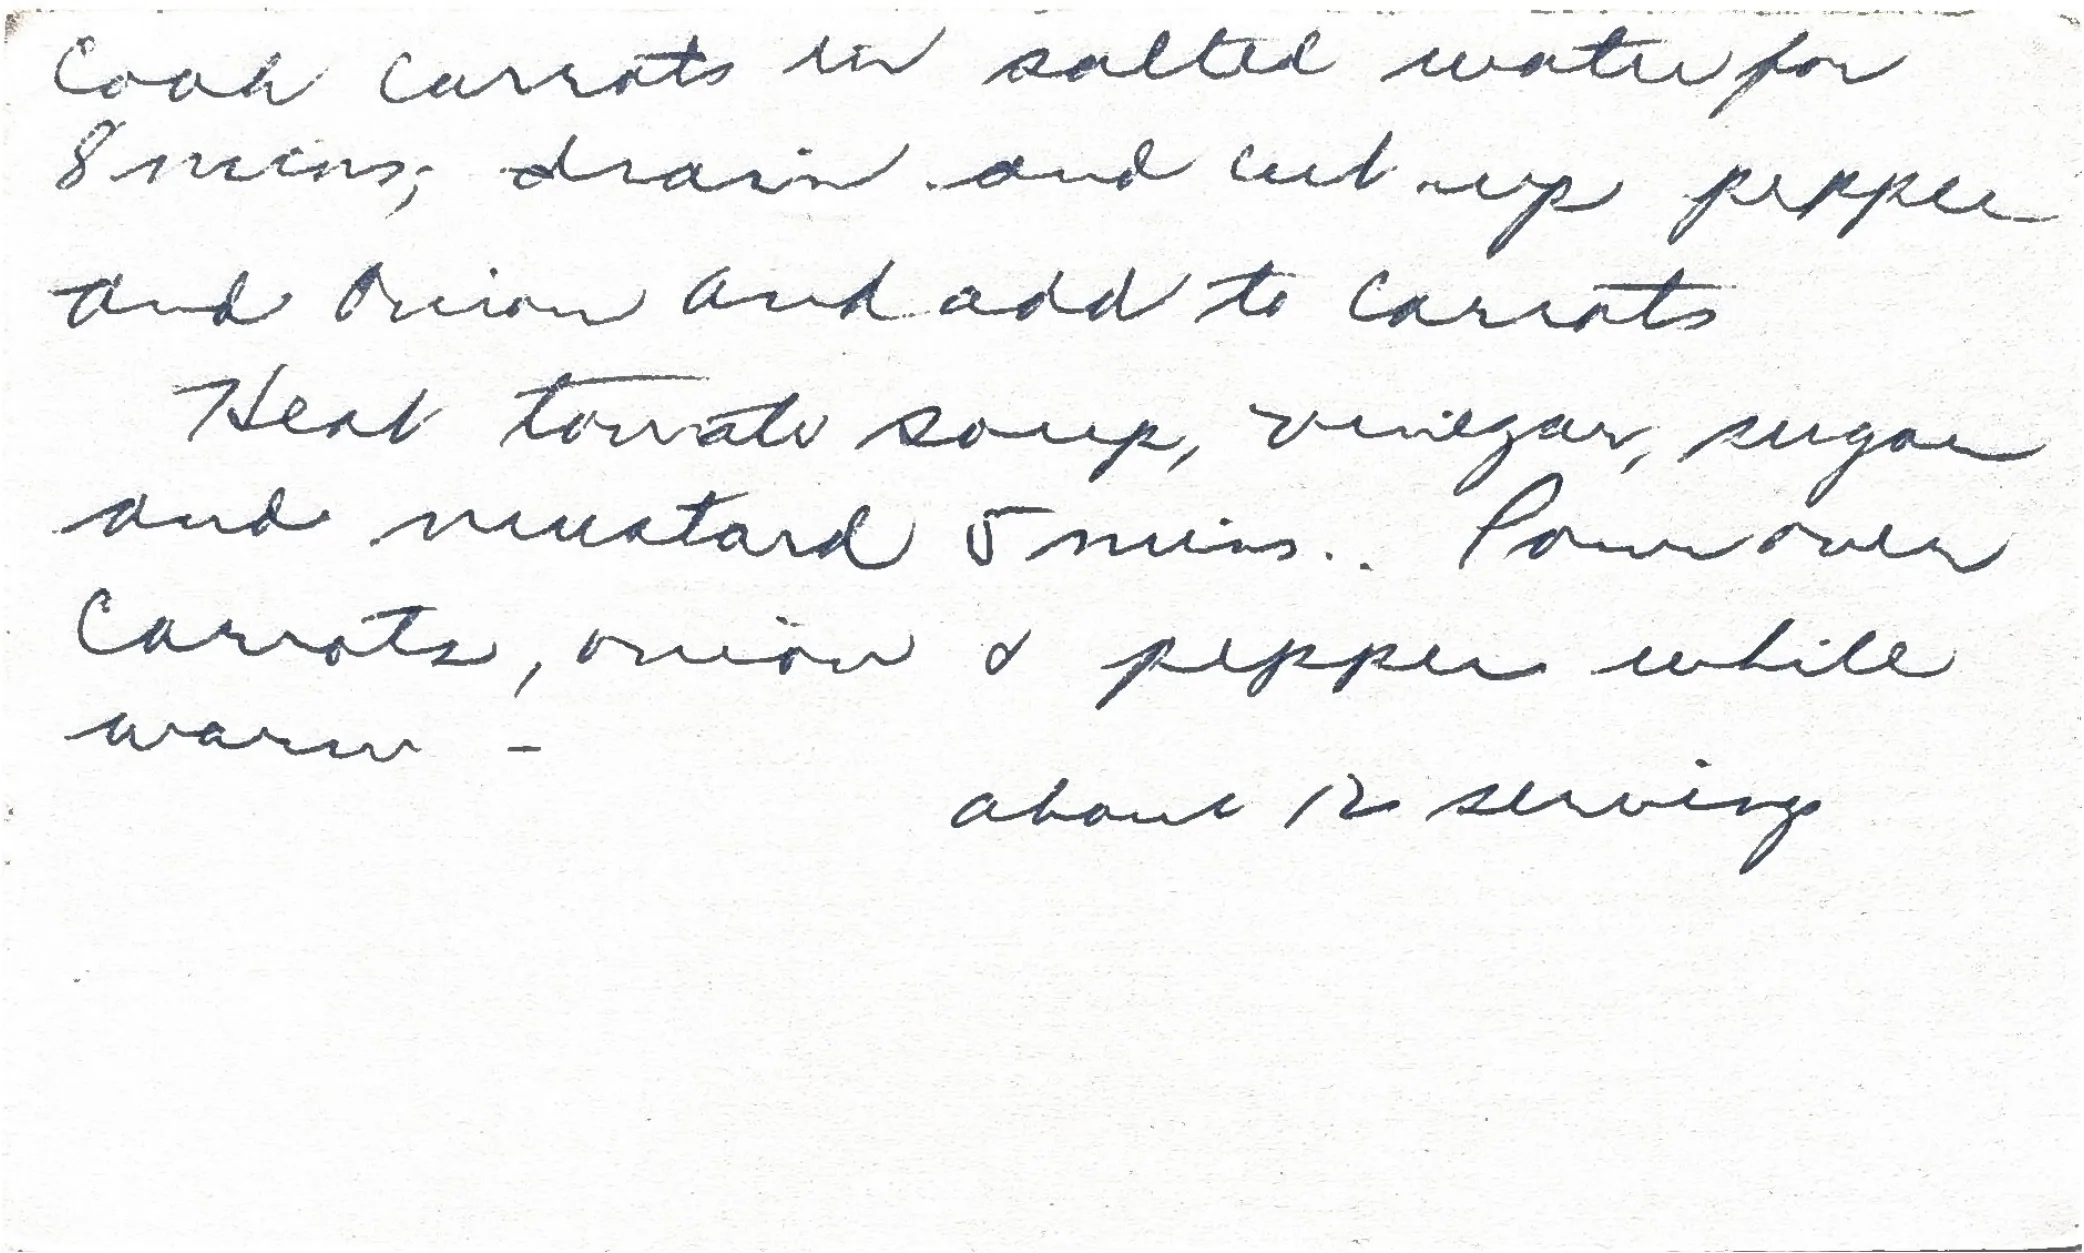 Cook Carrots in salted water for
8 mins; drain and cut up pepper
and Onion and add to Carrots
Heat tomato soup, vinegar, sugar
and mustard 5 mins.. Pour over
Carrots, onion & pepper while
warm -
about 12 servings